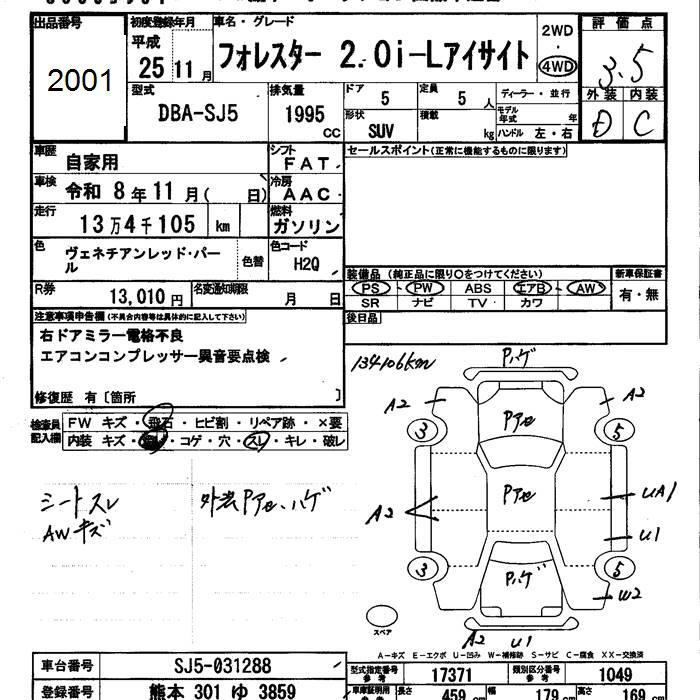 出品番号
2001
初度登録年月
平成
25 11 月
車名・グレード
フォレスター 2.0i-Lアイサイト
2WD
4WD
評価点
3.5
外装 内装
D C
型式
DBA-SJ5
排気量
1995
CC
ドア
5
定員
5 人
形状
SUV
積載
kg
ディーラー・並行
モデル年式 年
ハンドル 左・右
車歴
自家用
シフト
FAT
車検
令和 8年11月( 日)
冷房
AAC
走行
13万4千105 km
燃料
ガソリン
色
ヴェネチアンレッド・パール
色替
色コード
H2Q
R券
13,010円
名変通知期限
月 日
セールスポイント(正常に機能するものに限ります)
装備品 (純正品に限り○をつけてください)
PS・PW ABS エアB・AW
SR ナビ TV・カワ
新車保証書
有・無
後日品
注意事項申告欄(不具合内容等は具体的に記入して下さい)
右ドアミラー電格不良
エアコンコンプレッサー異音要点検
修復歴 有〔箇所 〕
検査員記入欄
FW キズ・飛石・ヒビ割・リペア跡・×要
内装 キズ・汚レ・コゲ・穴・スレ・キレ・破レ
シートスレ
AWキズ
外装Pアセ、ハゲ
134106km
Pハゲ
A2
A2
Pアセ
3
5
Pアセ
A2
UA1
U1
3
5
Pハゲ
W2
スペア
A2
U1
A-キズ E-エクボ U-凹み W-補修跡 S-サビ C-腐食 XX-交換済
車台番号
SJ5-031288
型式指定番号
参考
17371
類別区分番号
参考
1049
登録番号
熊本 301 ゆ 3859
車庫証明用
長さ
459 cm
幅
179 cm
高さ
169 cm